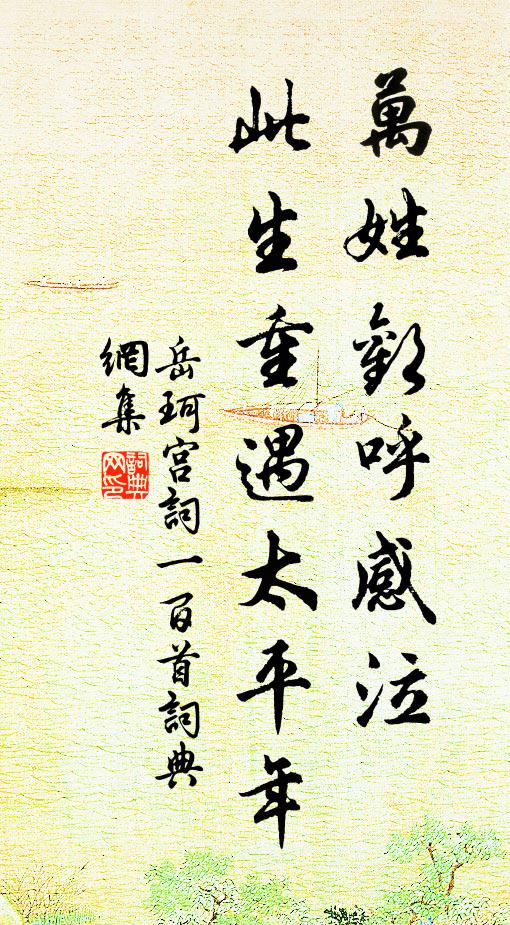 萬姓歡呼感泣
此生重遇太平年
岳珂宮詞一百首詞典
網集
詞典
网